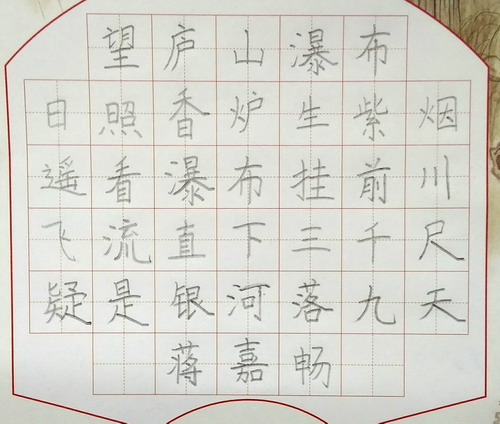 望庐山瀑布
日照香炉生紫烟
遥看瀑布挂前川
飞流直下三千尺
疑是银河落九天
蒋嘉畅